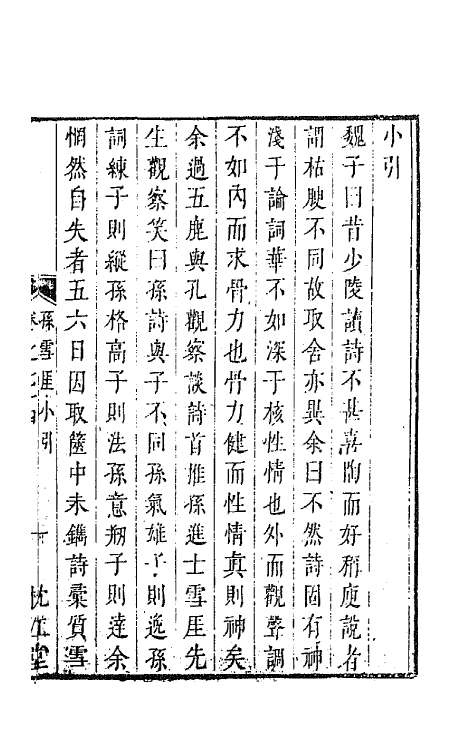 小引
魏子曰昔少陵讀詩不甚喜陶而好稱庾說者
謂枯腴不同故取舍亦異余曰不然詩固有神
淺于論詞華不如深于核性情也外而觀聲調
不如內而求骨力也骨力健而性情真則神矣
余過五鹿與孔觀察談詩首推孫進士雪厓先
生觀察笑曰孫詩與子不同孫氣雄子則逸孫
詞練子則縱孫格高子則法孫意刱子則達余
惘然自失者五六日因取篋中未鐫詩稾質雪
孫雪厓小引
卷之
堂